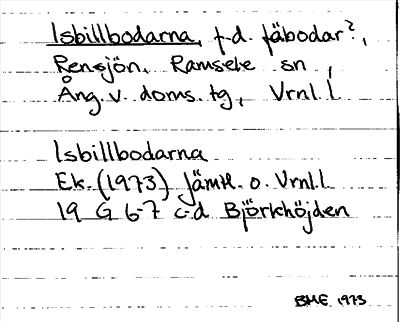 Isbillbodarna, f.d. fäbodar?,
Rensjön, Ramsele sn,
Ång. v. doms. tg, Vrnl. l
Isbillbodarna
Ek. (1973) Jämtl. o. Vrnl. l
19 G 6-7 c-d Björkhöjden
BME 1973